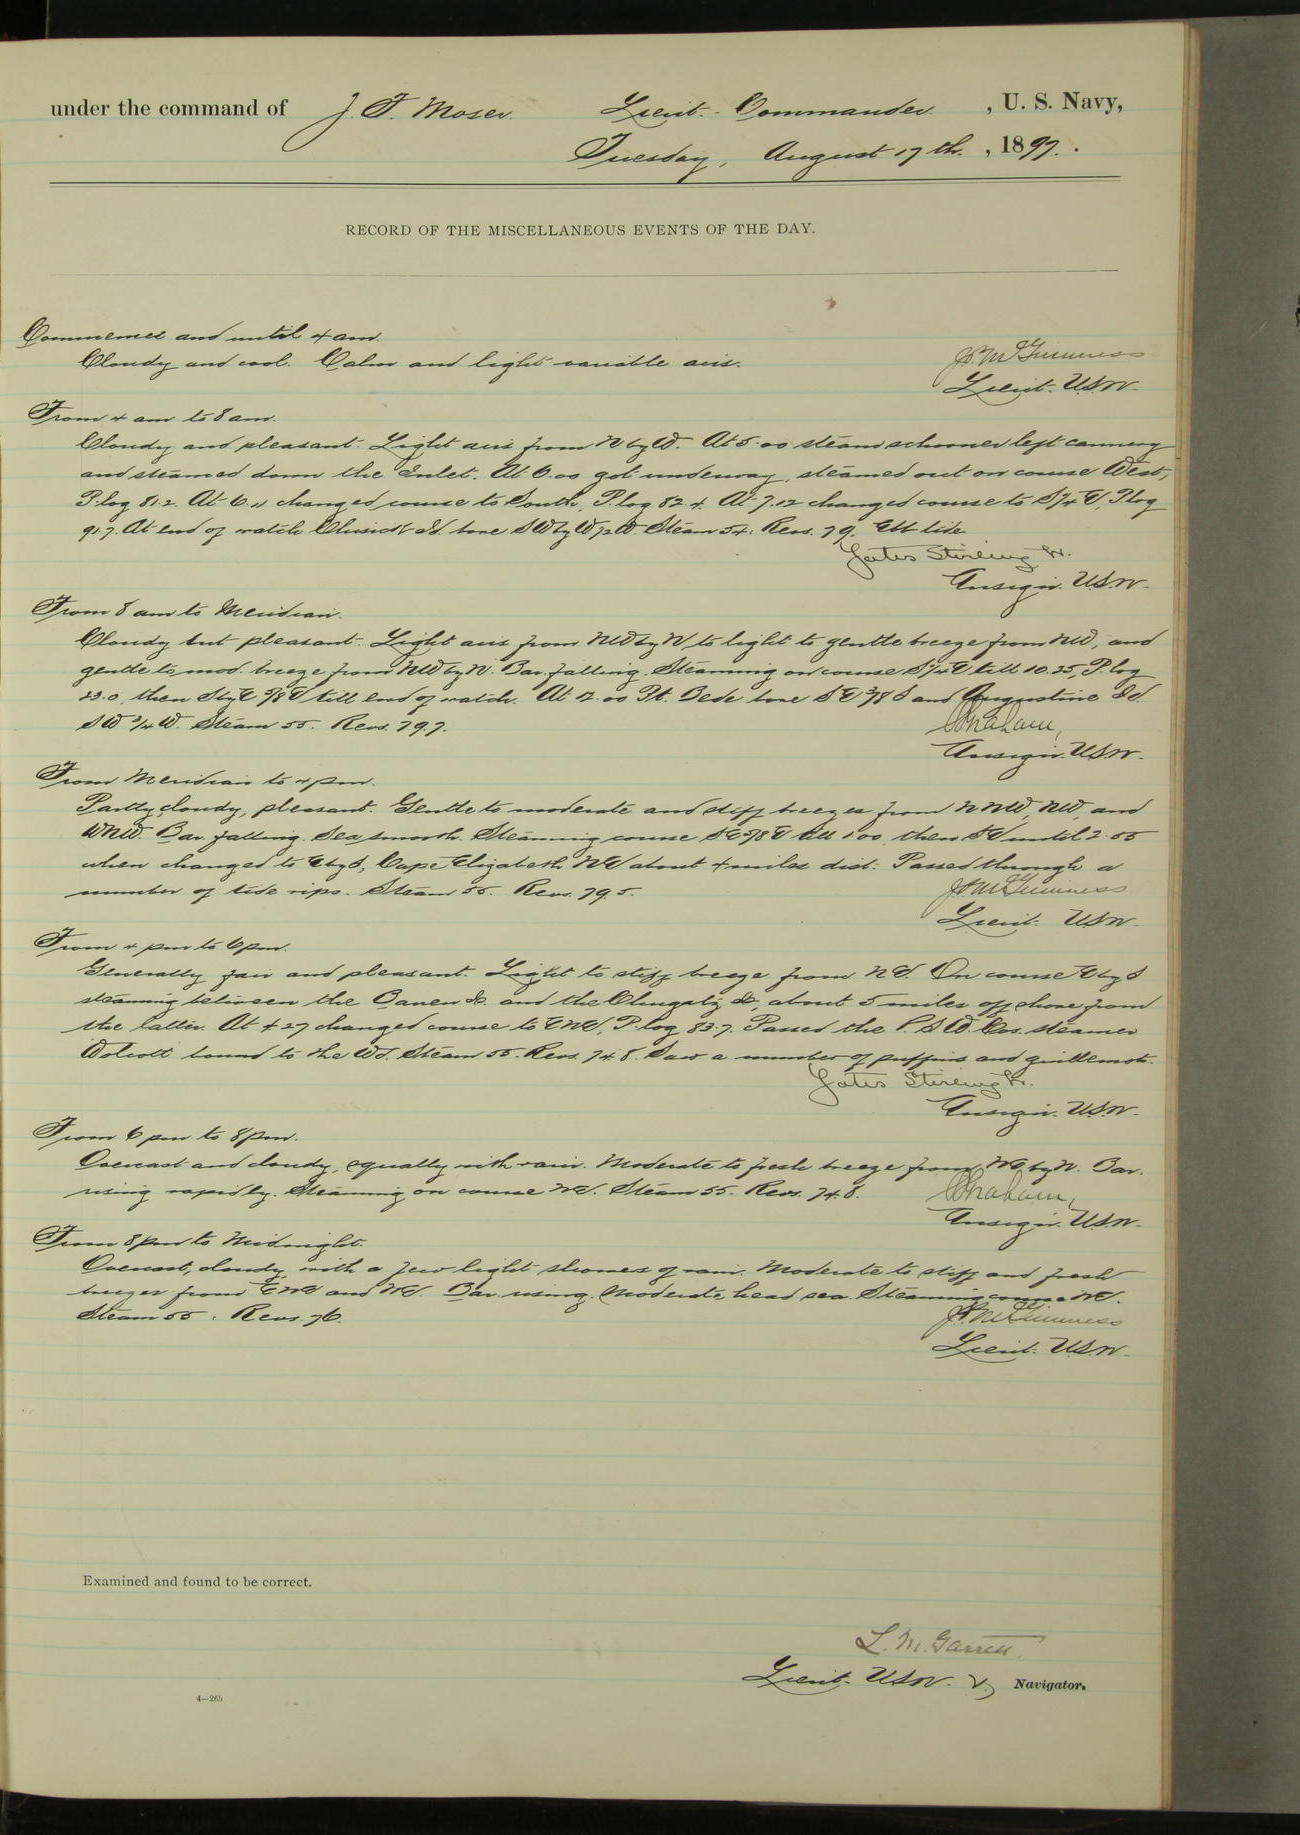 under the command of J. F. Moser Lieut.-Commander , U. S. Navy,
Tuesday, August 17th. , 1897.
RECORD OF THE MISCELLANEOUS EVENTS OF THE DAY.
Commences and until 4 am.
Cloudy and cool. Calm and light variable airs.
J.P. McGuinness
Lieut. U.S.N.
From 4 am to 8 am.
Cloudy and pleasant. Light airs from N by W. At 5.00 steam schooner left cannery
and steamed down the Inlet. At 6.00 got underway, steamed out on course West,
P. log 81.2. At 6.11 changed course to South, P. log 82.4. At 7.12 changed course to S 1/4 E, P. log
91.7. At end of watch Chisick Id. bore SW by W 1/2 W. Steam 54. Revs. 79. Ebb tide.
Yates Stirling Jr.
Ensign. U.S.N.
From 8 am to Meridian.
Cloudy but pleasant. Light airs from NW by N to light to gentle breeze from NW, and
gentle to mod. breeze from NW by N. Bar. falling. Steaming on course S 1/4 E till 10.25, P. log
23.0, then S by E 5/8 E till end of watch. At 12.00 Pt. Bede bore SE 3/8 S and Augustine Id.
SW 3/4 W. Steam 55. Revs. 79.7.
Graham,
Ensign. U.S.N.
From Meridian to 4 pm.
Partly cloudy, pleasant. Gentle to moderate and stiff breezes from NNW, NW, and
WNW. Bar. falling. Sea smooth. Steaming course SE 5/8 E till 1.00, then SE until 2.55
when changed to E by S, Cape Elizabeth NE about 4 miles dist. Passed through a
number of tide rips. Steam 55. Revs. 79.5.
J.P. McGuinness
Lieut. U.S.N.
From 4 pm to 6 pm.
Generally fair and pleasant. Light to stiff breeze from NE. On course E by S
steaming between the Barren Is. and the Chugatz Is., about 5 miles off shore from
the latter. At 4.27 changed course to ENE, P. log 83.7. Passed the steamer
Wolcott bound to the Wd. Steam 55. Revs. 74.8. Saw a number of puffins and guillemots.
Yates Stirling Jr.
Ensign. U.S.N.
From 6 pm to 8 pm.
Overcast and cloudy, squally with rain. Moderate to fresh breeze from NE by N. Bar.
rising rapidly. Steaming on course NE. Steam 55. Revs. 74.8.
Graham,
Ensign. U.S.N.
From 8 pm to Midnight.
Overcast, cloudy, with a few light showers of rain. Moderate to stiff and fresh
breezes from ENE and NE. Bar. rising. Moderate head sea. Steaming course NE.
Steam 55. Revs. 76.
J.P. McGuinness
Lieut. U.S.N.
Examined and found to be correct.
L. M. Garrett.
Lieut. U.S.N. &, Navigator.
4—265